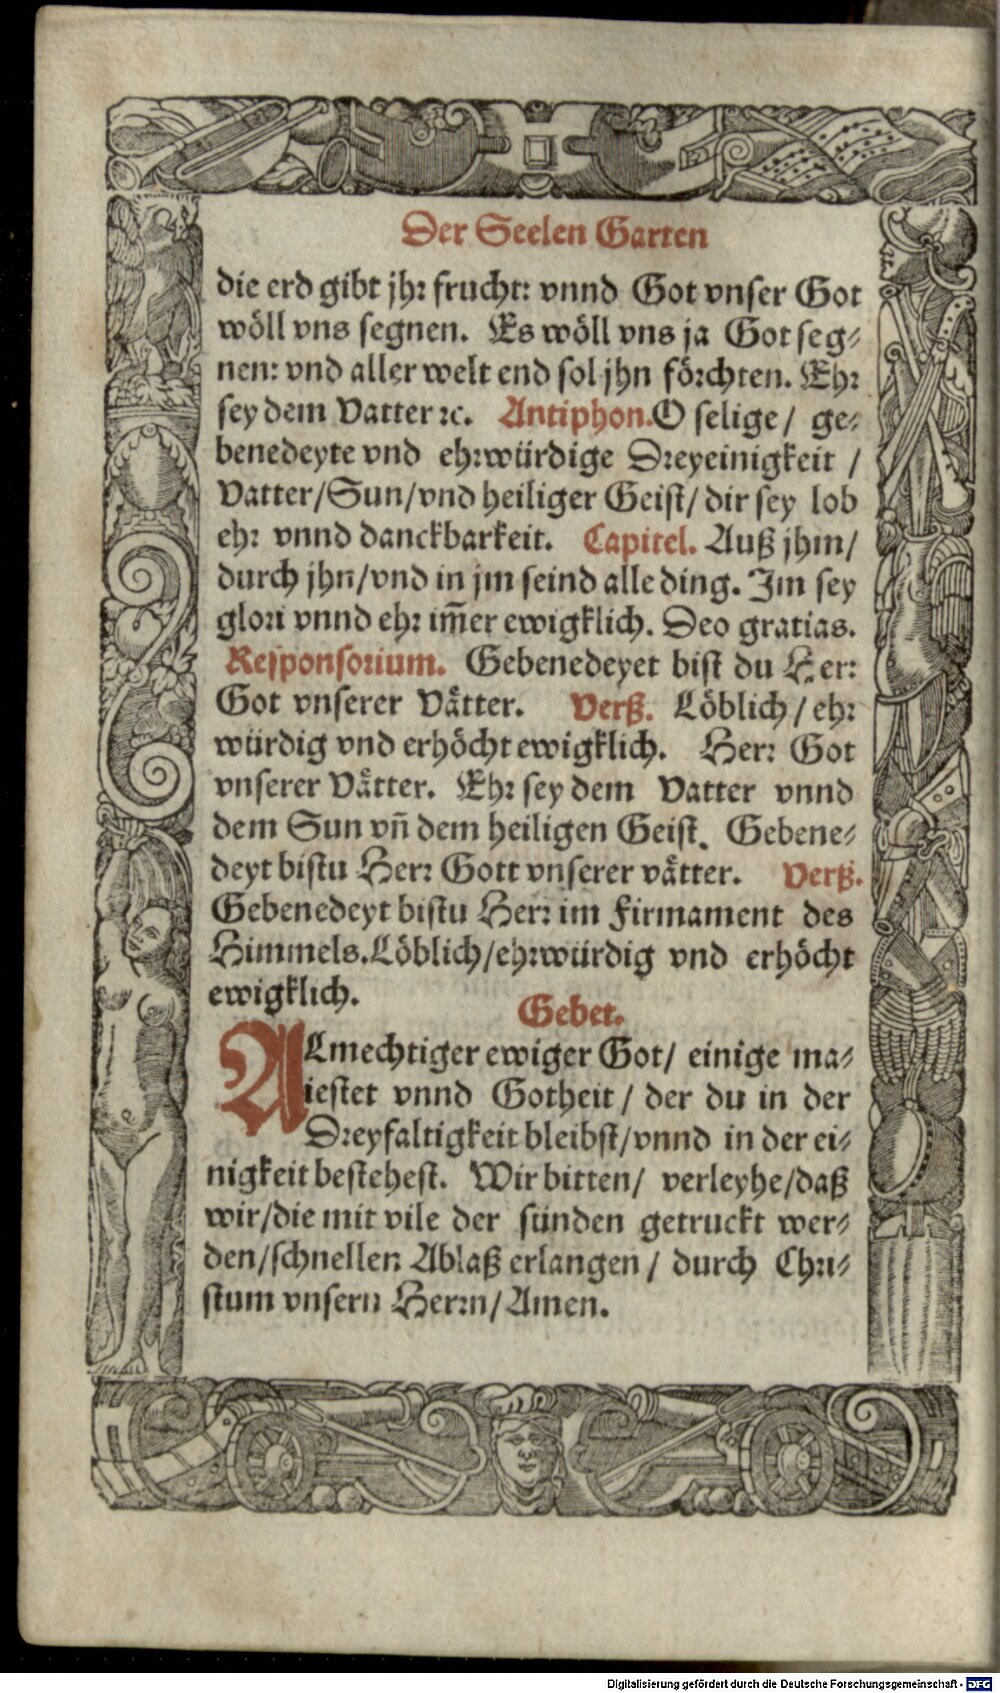 Der Seelen Garten
die erd gibt jhr frucht: vnnd Got vnser Got
wöll vns segnen. Es wöll vns ja Got seg⸗
nen: vnd aller welt end sol jhn förchten. Ehr
sey dem Vatter ꝛc. Antiphon. O selige/ ge⸗
benedeyte vnd ehrwürdige Dreyeinigkeit /
Vatter/Sun/vnd heiliger Geist/ dir sey lob
ehr vnnd danckbarkeit. Capitel. Auß jhm/
durch jhn/vnd in jm seind alle ding. Im sey
glori vnnd ehr im̃er ewigklich. Deo gratias.
Responsorium. Gebenedeyet bist du Herr
Got vnserer Våtter. Verß. Löblich/ ehr
würdig vnd erhöcht ewigklich. Herr Got
vnserer Våtter. Ehr sey dem Vatter vnnd
dem Sun vñ dem heiligen Geist. Gebene⸗
deyt bistu Herr Gott vnserer våtter. Verß.
Gebenedeyt bistu Herr im Firmament des
Himmels. Löblich/ehrwürdig vnd erhöcht
ewigklich.
Gebet.
ALmechtiger ewiger Got/ einige ma⸗
iestet vnnd Gotheit / der du in der
Dreyfaltigkeit bleibst/vnnd in der ei⸗
nigkeit bestehest. Wir bitten/ verleyhe/daß
wir/die mit vile der sünden getruckt wer⸗
den/schnellen Ablaß erlangen / durch Chri⸗
stum vnsern Herrn/Amen.
Digitalisierung gefördert durch die Deutsche Forschungsgemeinschaft - DFG